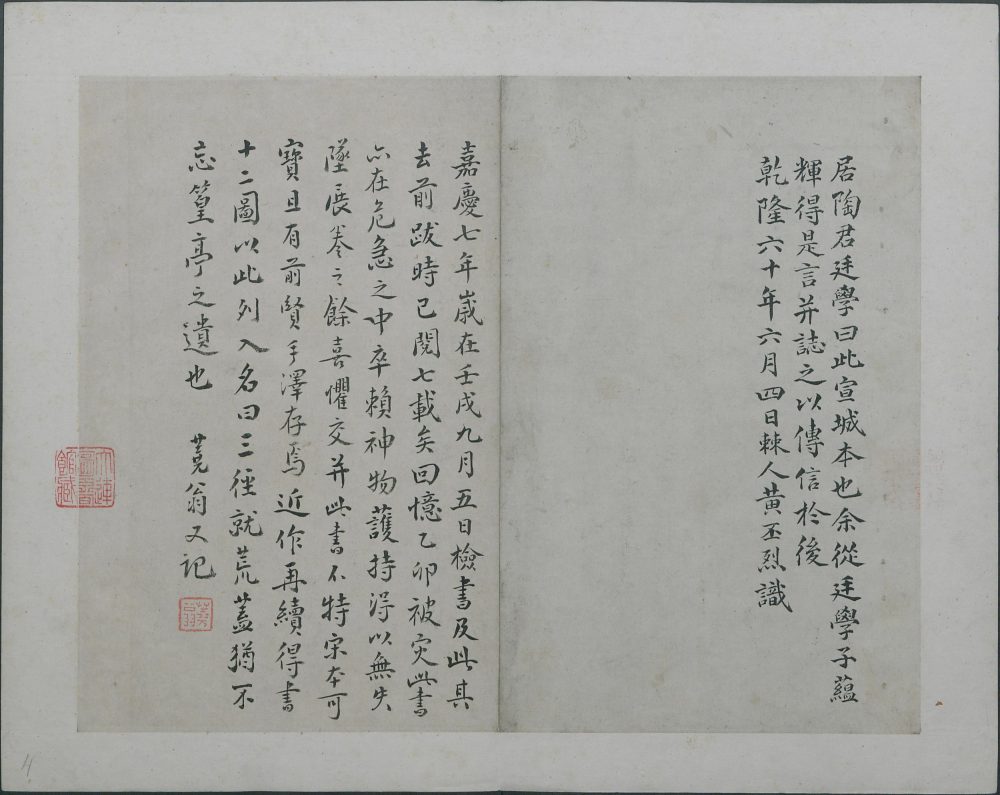 居陶君廷學曰此宣城本也余從廷學子蘊
輝得是言并誌之以傳信於後
乾隆六十年六月四日棘人黃丕烈識
嘉慶七年歲在壬戌九月五日檢書及此其
去前跋時已閱七載矣回憶乙卯被灾此書
亦在危急之中卒賴神物護持得以無失
墜展卷之餘喜懼交并此書不特宋本可
寶且有前賢手澤存焉近作再續得書
十二圖以此列入名曰三徑就荒蓋猶不
忘篁亭之遺也 蕘翁又記
蕘翁
大連圖書館藏